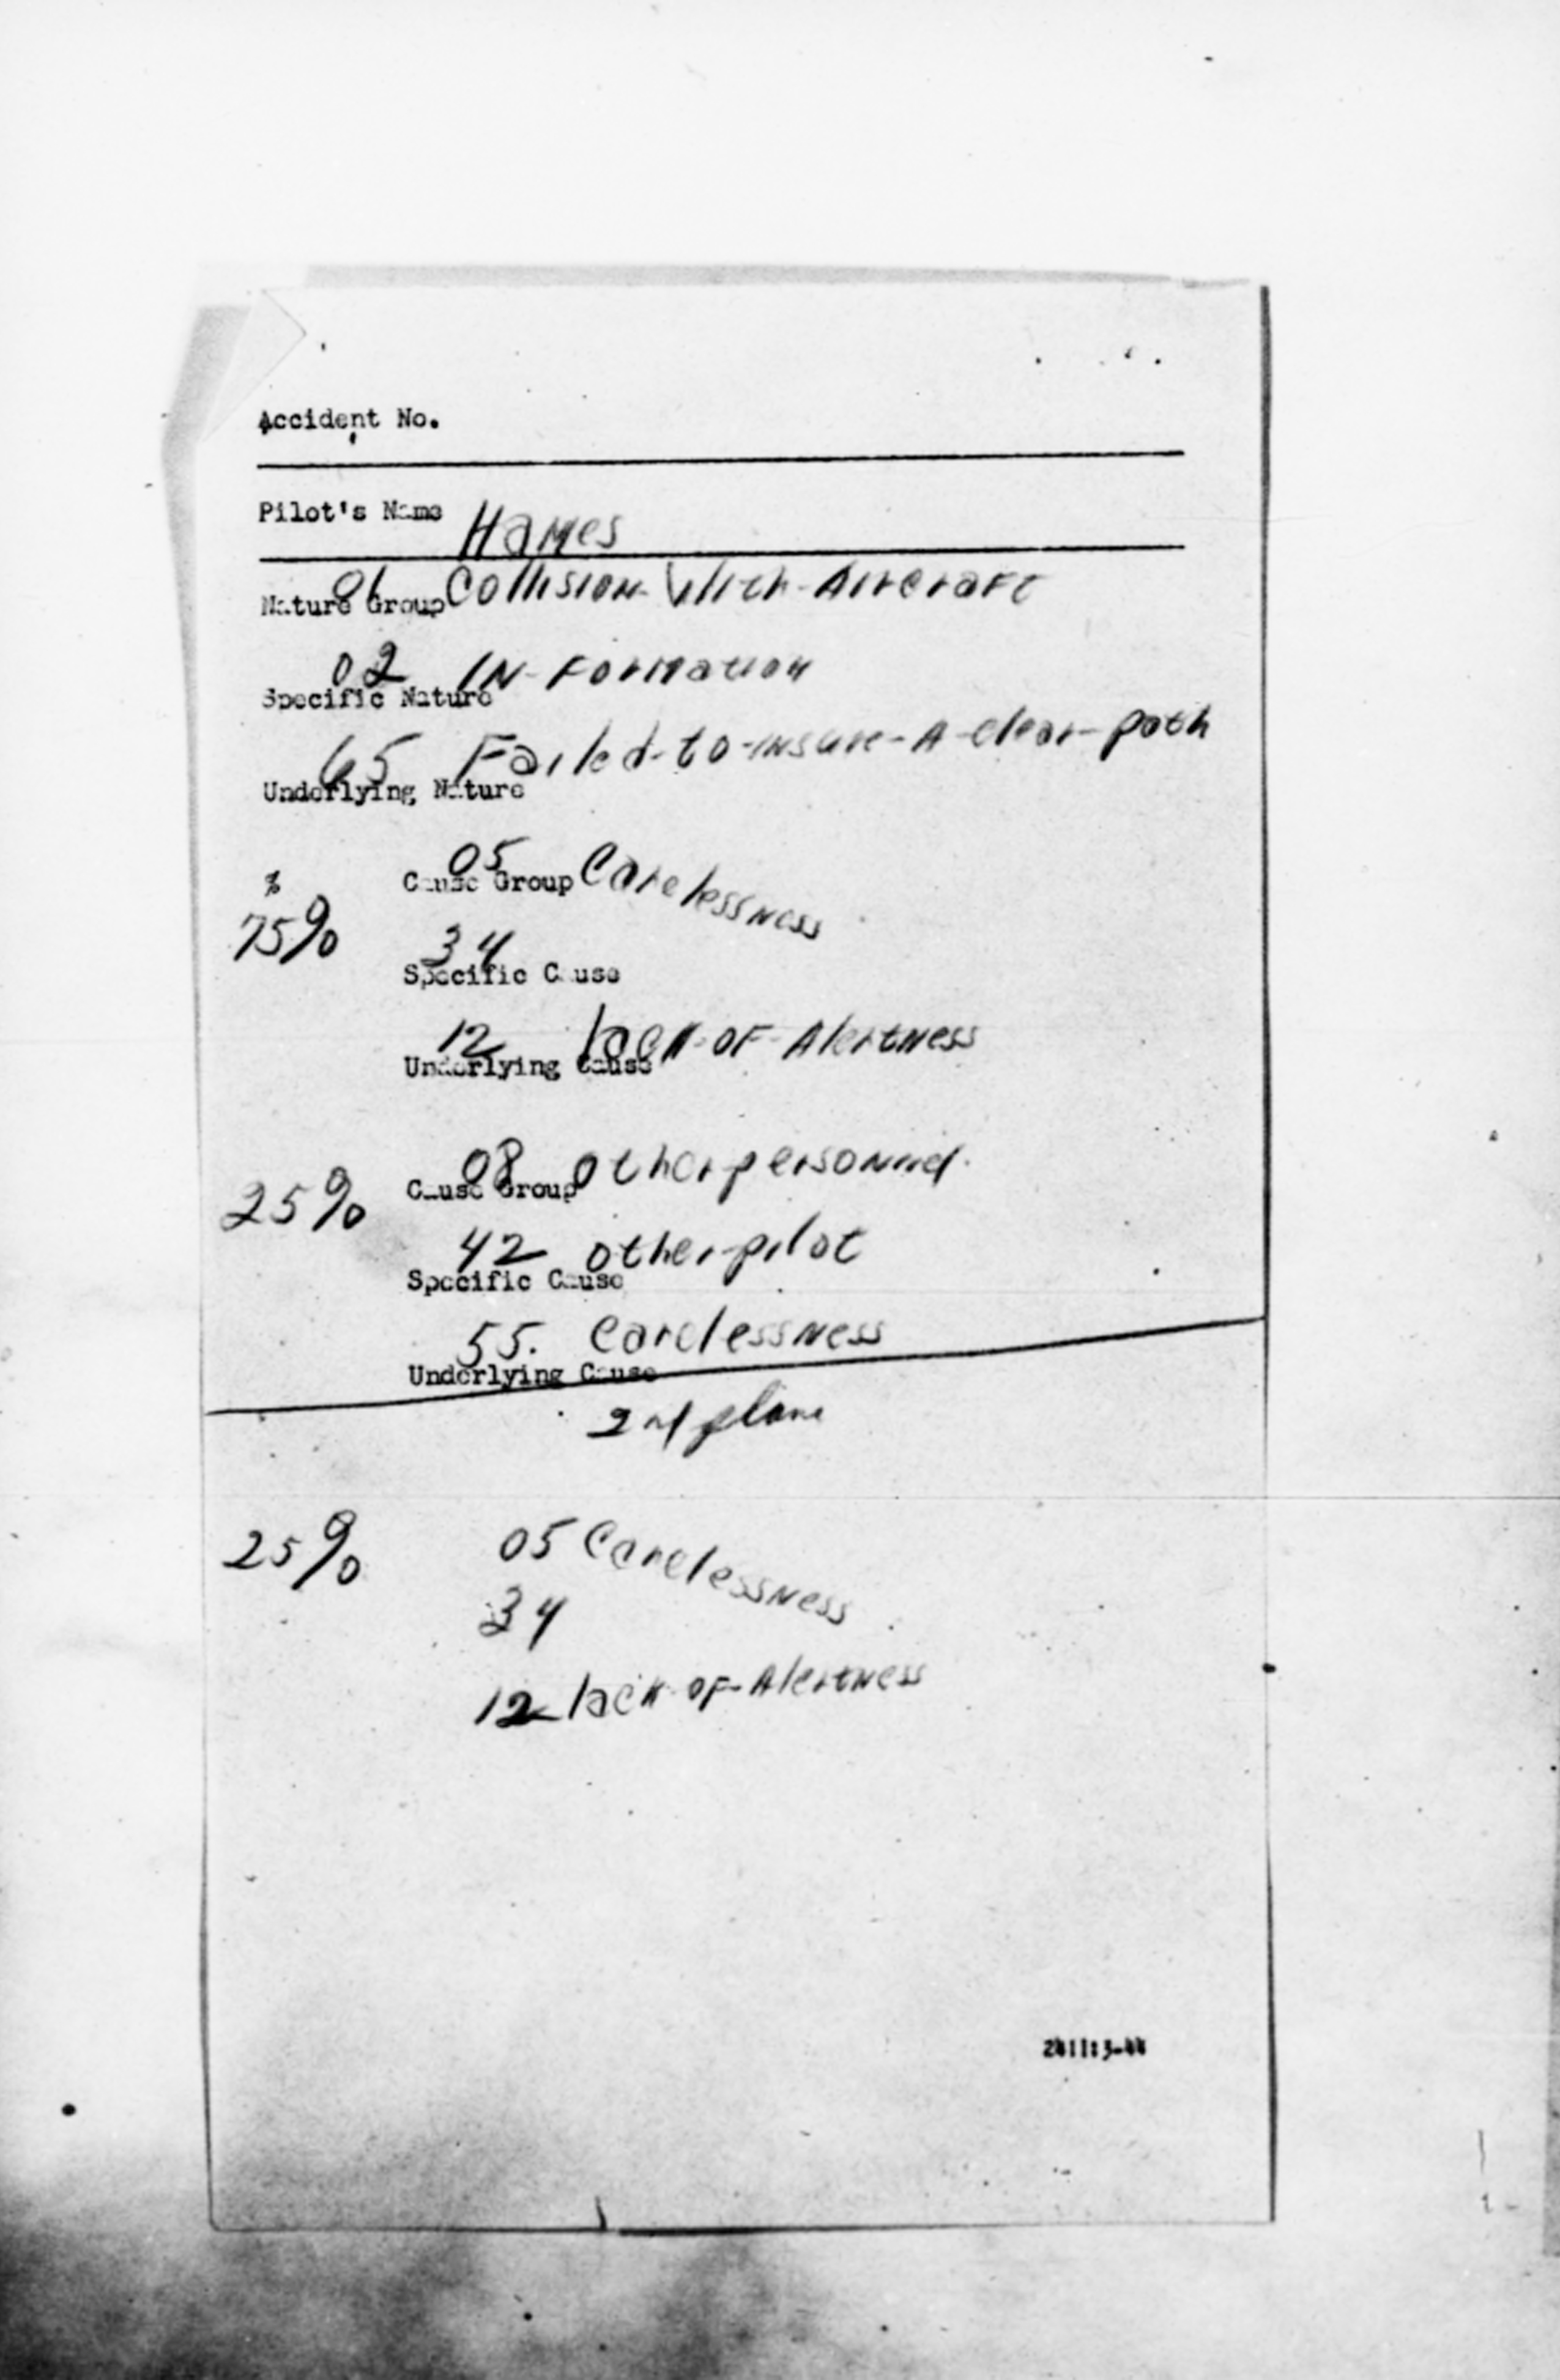 Accident No.
Pilot's Name Hames
01 Collision With Aircraft
Nature Group
02 IN-Formation
Specific Nature
65 Failed-to-insure-A-clear-path
Underlying Nature
%
05 Carelessness
Cause Group
75%
34
Specific Cause
12 lack-OF-Alertness
Underlying Cause
08 other-personnel.
Cause Group
25%
42 other-pilot
Specific Cause
55. Carelessness
Underlying Cause
2nd plane
25% 05 Carelessness
34
12 lack-OF-Alertness